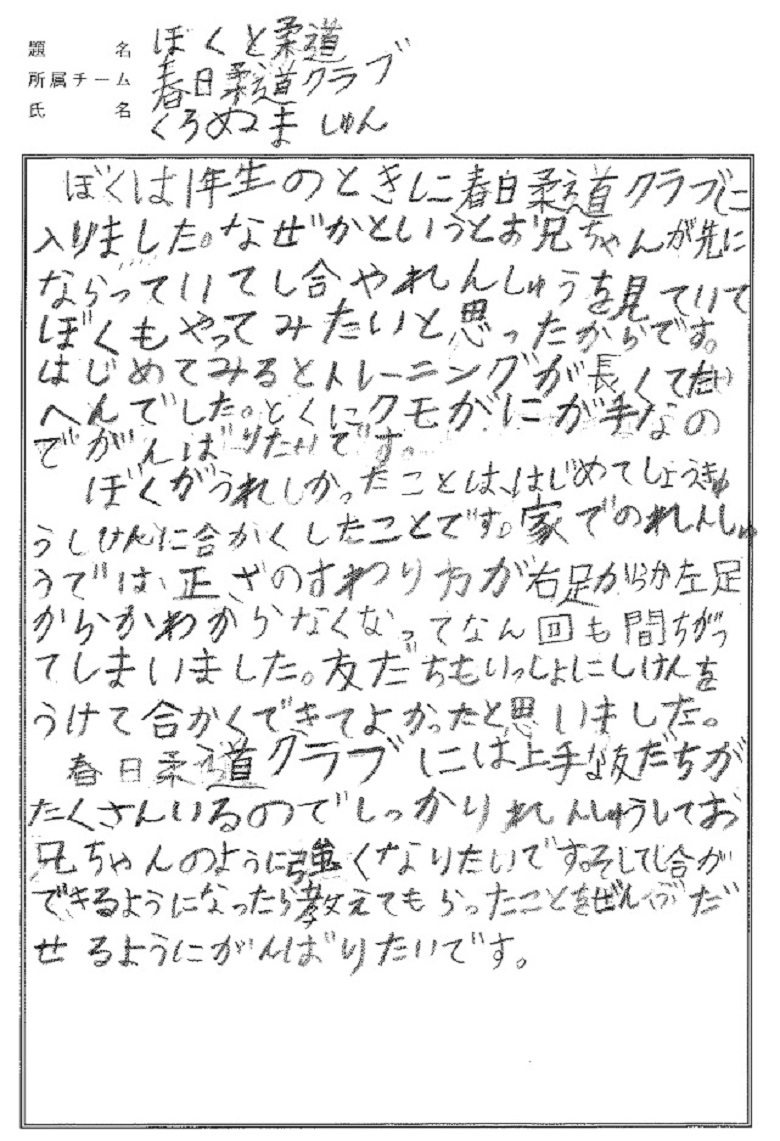 題名 ぼくと柔道
所属チーム 春日柔道クラブ
氏名 くろぬま しゅん
ぼくは1年生のときに春日柔道クラブに
入りました。なぜかというとお兄ちゃんが先に
ならっていてし合やれんしゅうを見ていて
ぼくもやってみたいと思ったからです。
はじめてみるとトレーニングが長くてたい
へんでした。とくにクモがにが手なの
でがんばりたいです。
ぼくがうれしかったことは、はじめてしょうきゅ
うしけんに合かくしたことです。家でのれんしゅ
うでは正ざのすわり方が右足からか左足
からかわからなくなってなん回も間ちがっ
てしまいました。友だちもいっしょにしけんを
うけて合かくできてよかったと思いました。
春日柔道クラブには上手な友だちが
たくさんいるのでしっかりれんしゅうしてお
兄ちゃんのように強くなりたいです。そしてし合が
できるようになったら教えてもらったことをぜんぶだ
せるようにがんばりたいです。